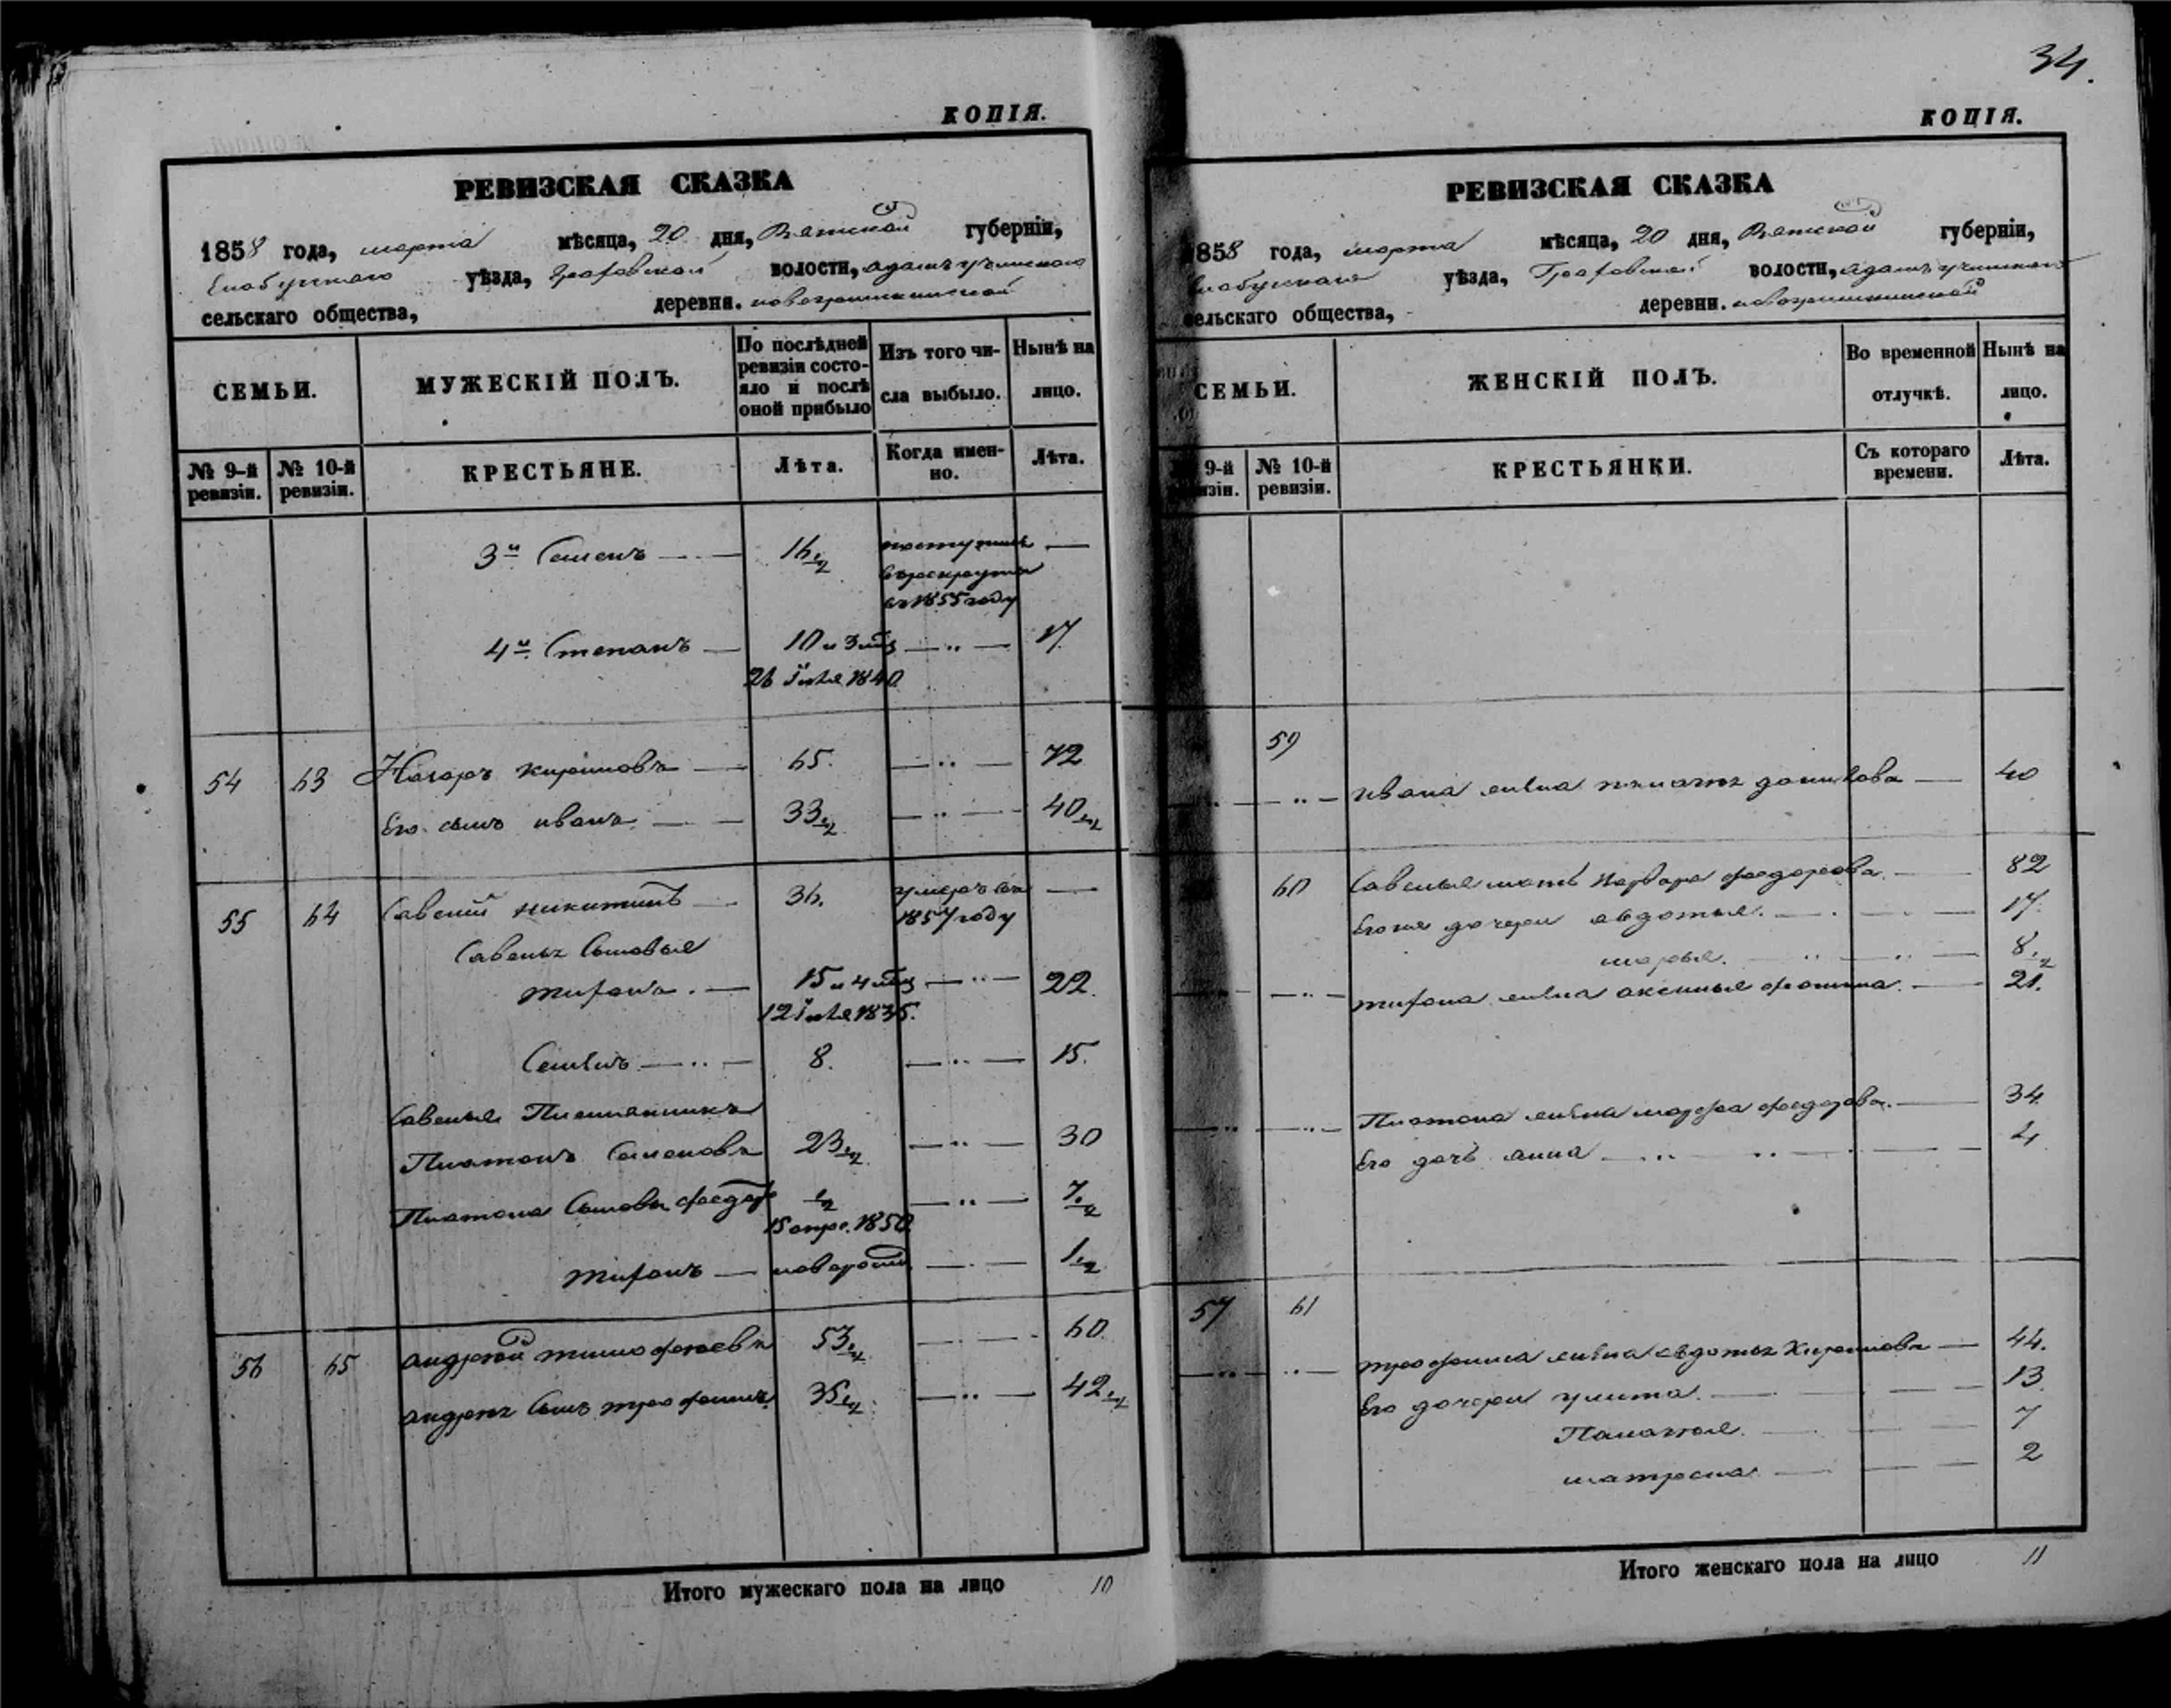 КОПІЯ.
РЕВИЗСКАЯ СКАЗКА
1858 года, марта мѣсяца, 20 дня, Вятской губерніи,
Елабужскаго уѣзда, Граховской волости,
сельскаго общества, деревни.
СЕМЬИ. МУЖЕСКІЙ ПОЛЪ. По послѣдней ревизіи состояло и послѣ оной прибыло Изъ того числа выбыло. Нынѣ на лицо.
№ 9-й ревизіи. № 10-й ревизіи. КРЕСТЬЯНЕ. Лѣта. Когда именно. Лѣта.
3й Семенъ 16½ поступилъ
въ рекруты
въ 1855 году
4й Степанъ 10 и 3 мѣс 17.
26 Іюля 1840.
54 63 Назаръ Кириловъ 65. 72
Его сынъ иванъ 33½ 40½
55 64 Савелій никитинъ 36. умеръ въ
1857 году
Савелья Сыновья
тифонъ. 15 и 4 мѣс 22.
12 Іюля 1835.
Семенъ 8. 15.
Савелья Племянникъ
Платонъ Семеновъ 23½ 30
Платона Сыновья федоръ ½ 7½
15 апре. 1850.
тифонъ новорожд 1½
56 65 андрей тимофеевъ 53½ 60.
андрея Сынъ трофимъ 35½ 42½
Итого мужескаго пола на лицо 10
34.
КОПІЯ.
РЕВИЗСКАЯ СКАЗКА
1858 года, марта мѣсяца, 20 дня, Вятской губерніи,
Елабужскаго уѣзда, Граховской волости,
сельскаго общества, деревни.
СЕМЬИ. ЖЕНСКІЙ ПОЛЪ. Во временной отлучкѣ. Нынѣ на лицо.
9-й ревизіи. № 10-й ревизіи. КРЕСТЬЯНКИ. Съ котораго времени. Лѣта.
59
ивана жена данилова 40
60 Савелья мать варвара федорова 82
Его же дочери авдотья. 17.
марья. 8½
тифона жена аксинья фомина. 21.
Платона жена марфа федорова. 34
Его дочь анна 4
57 61
трофима жена авдотья Кирилова 44.
Его дочери улита. 13
Палагея. 7
матрена. 2
Итого женскаго пола на лицо 11